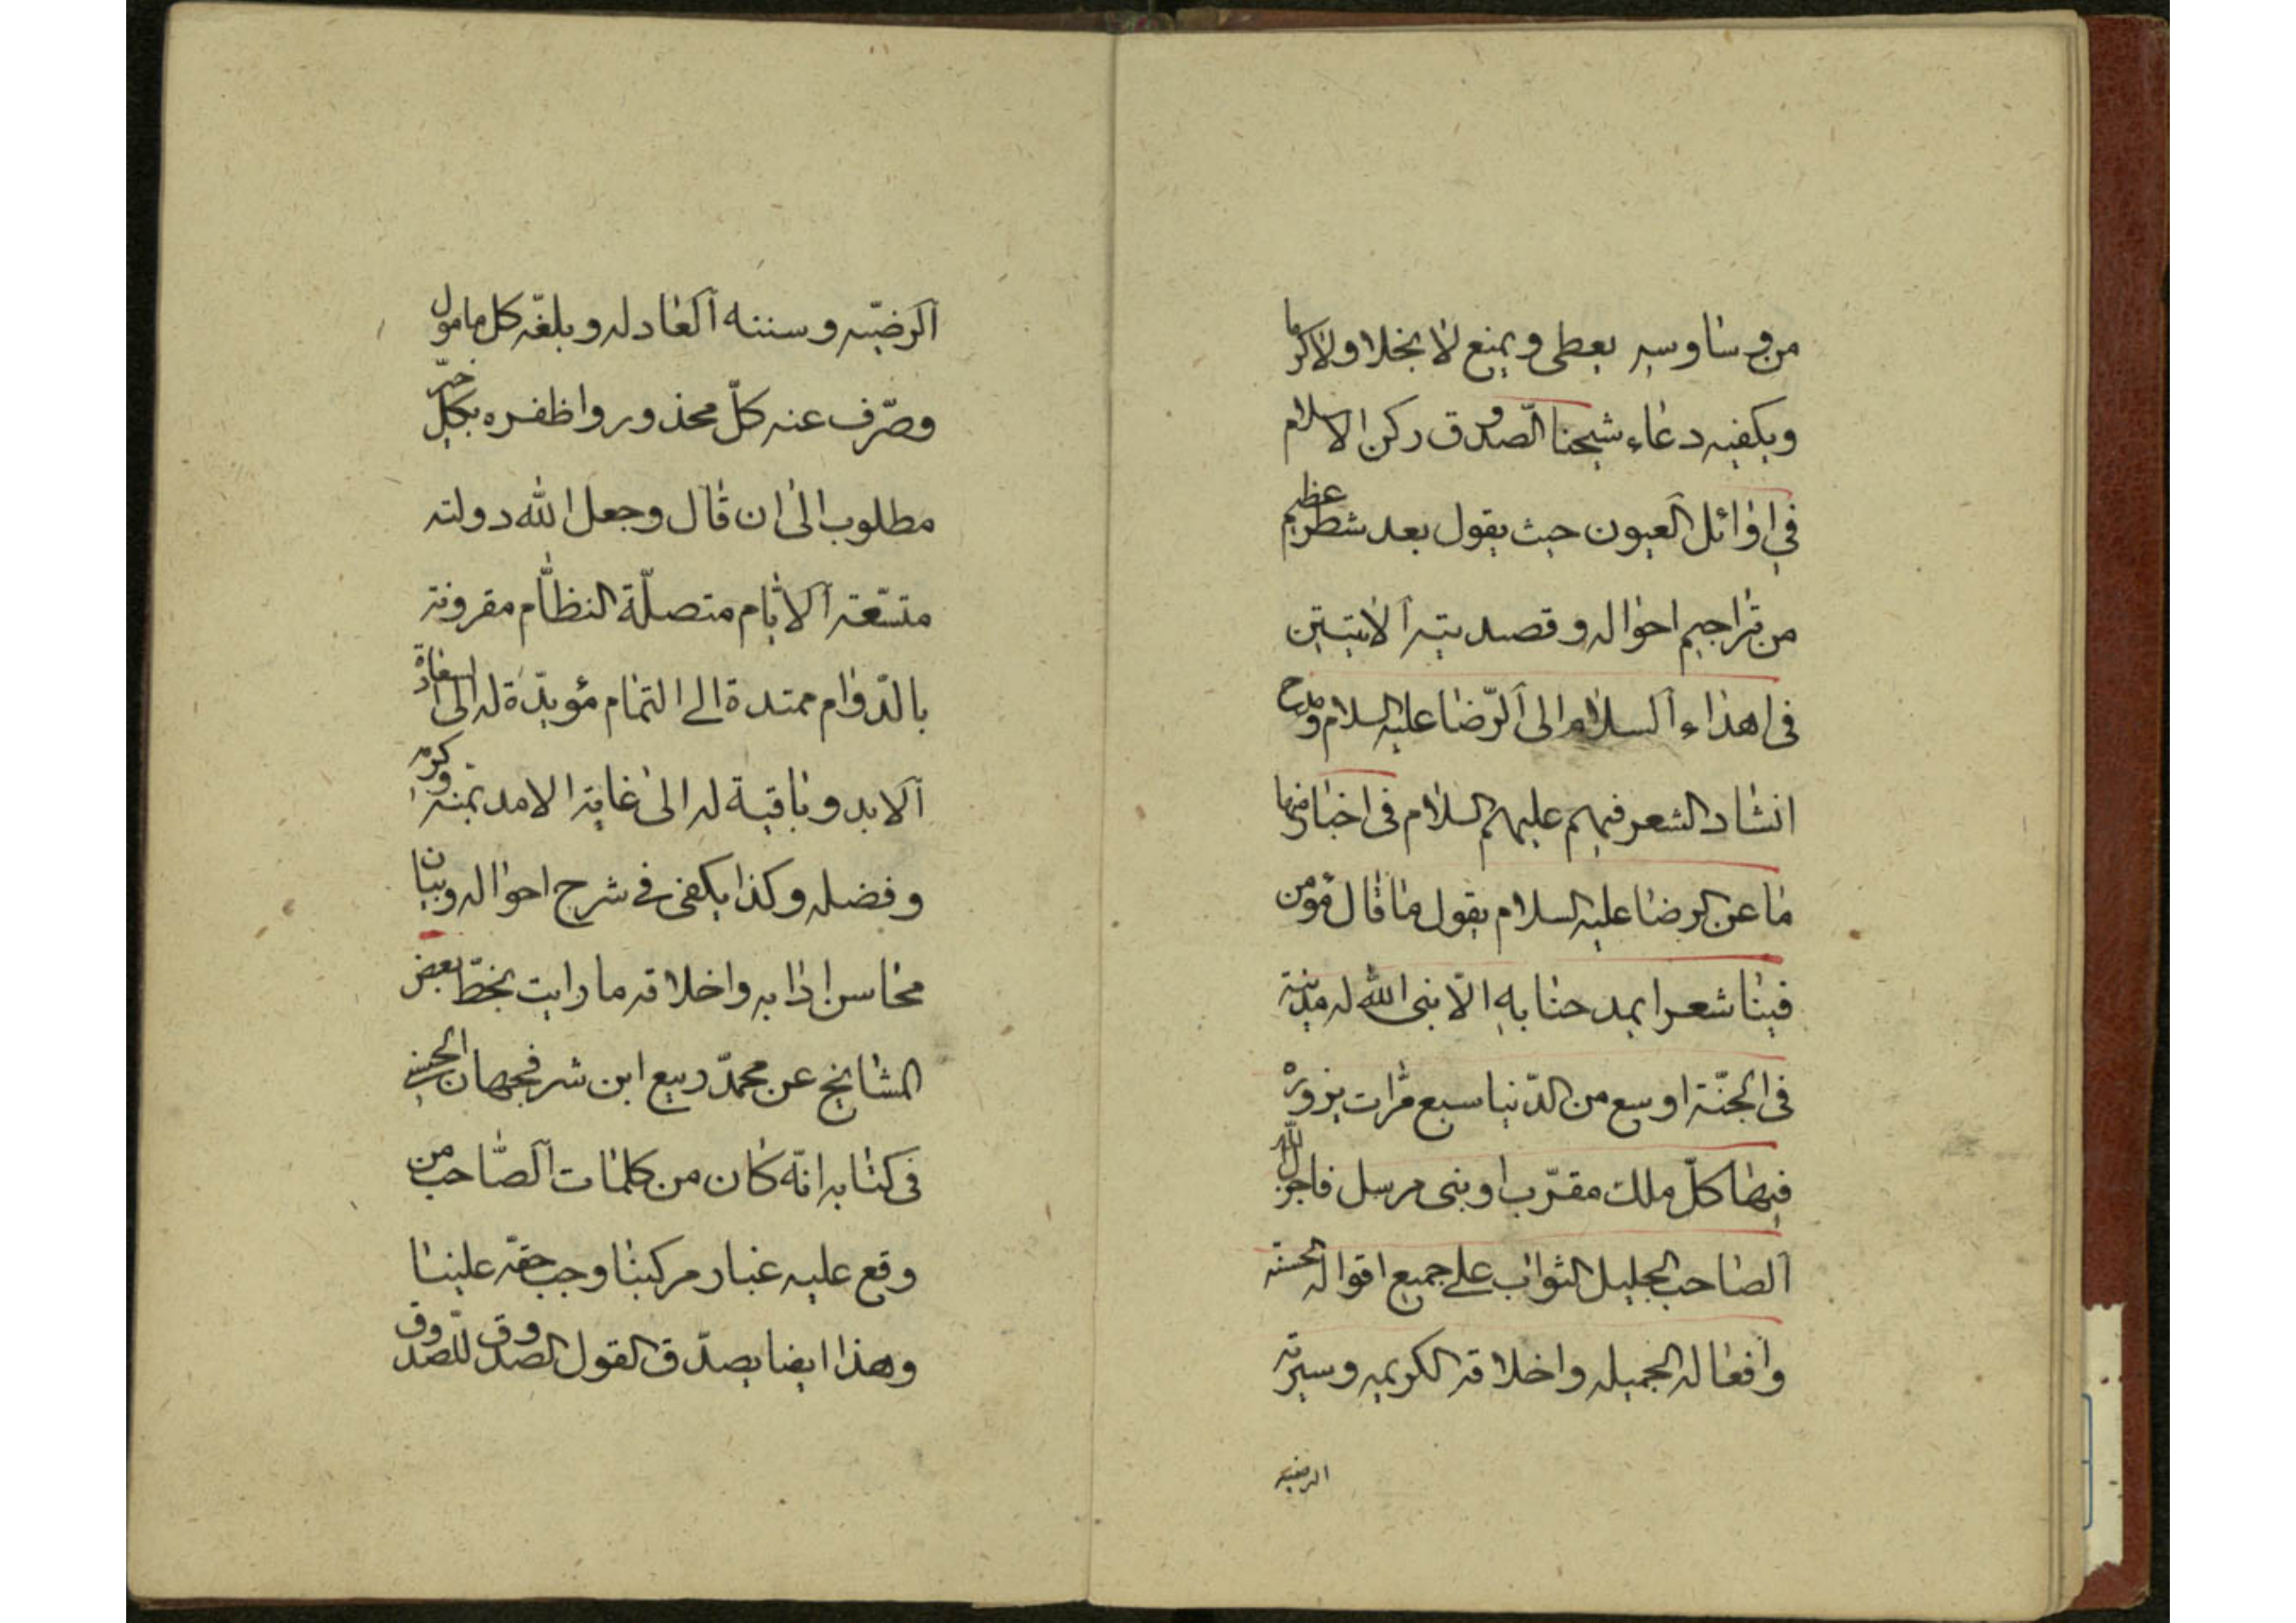 من وساوسه يعطى ويمنع لا بخلا ولا كرما
ويكفيه دعاء شيخنا الصّدوق ركن الاسلام
فى اوائل العيون حيث يقول بعد شطر عظيم
من تراجم احواله وقصيدتيه الاتيتين
فى اهداء السلام الى الرّضا عليه السلام ومدح
انشاد الشعر فيهم عليهم السلام فى اخبار منها
ما عن الرضا عليه السلام يقول ما قال مؤمن
فينا شعرا يمدحنا به الّا بنى الله له مدينة
فى الجنّة اوسع من الدّنيا سبع مرّات يزوره
فيها كلّ ملك مقرّب او نبى مرسل فاجزل الله
الصاحب الجليل الثواب على جميع اقواله الحسنة
وافعاله الجميله واخلاقه الكريمه وسيرته
الرضيه
الرضيّه وسننه العادله وبلغّه كل مامول
وصرّف عنه كلّ محذور واظفره بكلّ خير
مطلوب الى ان قال وجعل الله دولته
متسّعة الايّام متصلّة النظام مقرونة
بالدّوام ممتدة الى التمام مؤيدّة له الى
الابد وباقية له الى غاية الامد بمنه وكرمه
وفضله وكذا يكفى فى شرح احواله وبيان
محاسن ادابه واخلاقه ما رايت بخطّ بعض
المشايخ عن محمّد ربيع ابن شرفجهان الحسنى
فى كتابه انّه كان من كلمات الصّاحب من
وقع عليه غبار مركبنا وجب حقه علينا
وهذا ايضا يصدّق القول الصدوق للصّدوق